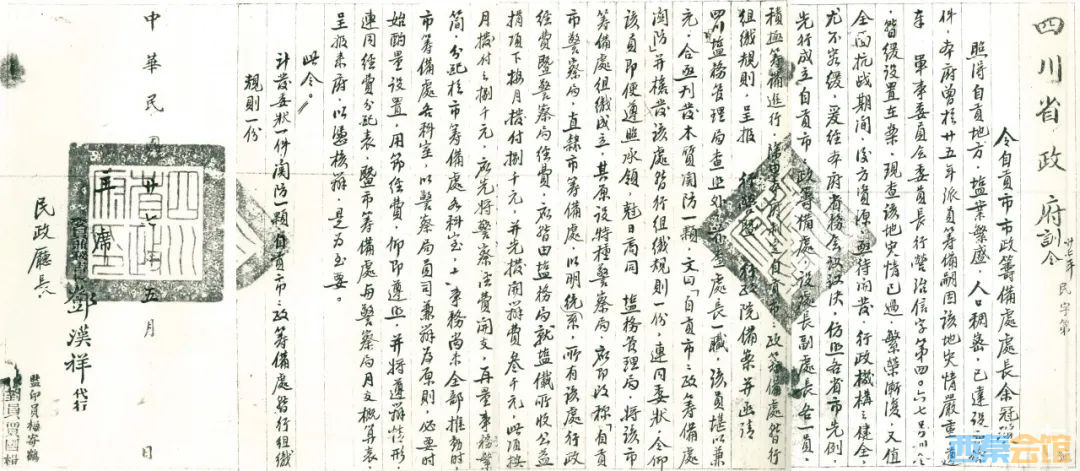 四川省政府訓令
廿七年 民字第
令自貢市市政籌備處處長余冠
照得自貢地方，塩業繁盛，人口稠密，已達設
件，本府曾於廿五年派員籌備，嗣因該地災情嚴重
奉 軍事委員會委員長行營治信字第四〇六七号
暫緩設置在案。現查該地災情已過，繁榮漸復，又值
全面抗战期间，後方資源，亟待開發，行政機構之健全，
尤不容緩，爰經本府省務會議議決，仿照各省市先例，
先行成立自貢市市政籌備處，設處長副處長各一員，
積極籌備進行，自貢市市政籌備處暫行
組織規則，呈報 行政院備案，并函請
四川塩務管理局查照外，處長一職，該員堪以兼
元，合亟刊發木質関防一顆，文曰「自貢市市政籌備處
関防」并檢發該處暫行組織規則一份，連同委狀，令仰
該員即便遵照承領，尅日商同 塩務管理局，將該市
籌備處組織成立，其原設特種警察局，應即改称「自貢
市警察局」，直隸市籌備處，以明統系，所有該處行政
經費暨警察局經費，應皆由塩務局就塩儎所收公益
捐項下按月撥付捌千元，并先撥開辦費叁千元，此項按
月撥付之捌千元，應先將警察活費開支，再量事務繁
简，分配於市籌備處各科室，七事務尚未全部推動時，
市籌備處各科室，以警察局員司兼辦為原則，必要時
始酌量設置，用節經費，仰即遵照，并將遵辦情形
連同經費分配表，暨市籌備處与警察局月支概算表
呈报來府，以憑核辦，是為至要。
此令。
計發委狀一件関防一顆自貢市市政籌備處暫行組織
規則一份
主席
民政廳長
鄧漢祥代行
中華民國廿七年五月 日
監印員楊寄鶴
對員賈國
西秦会馆